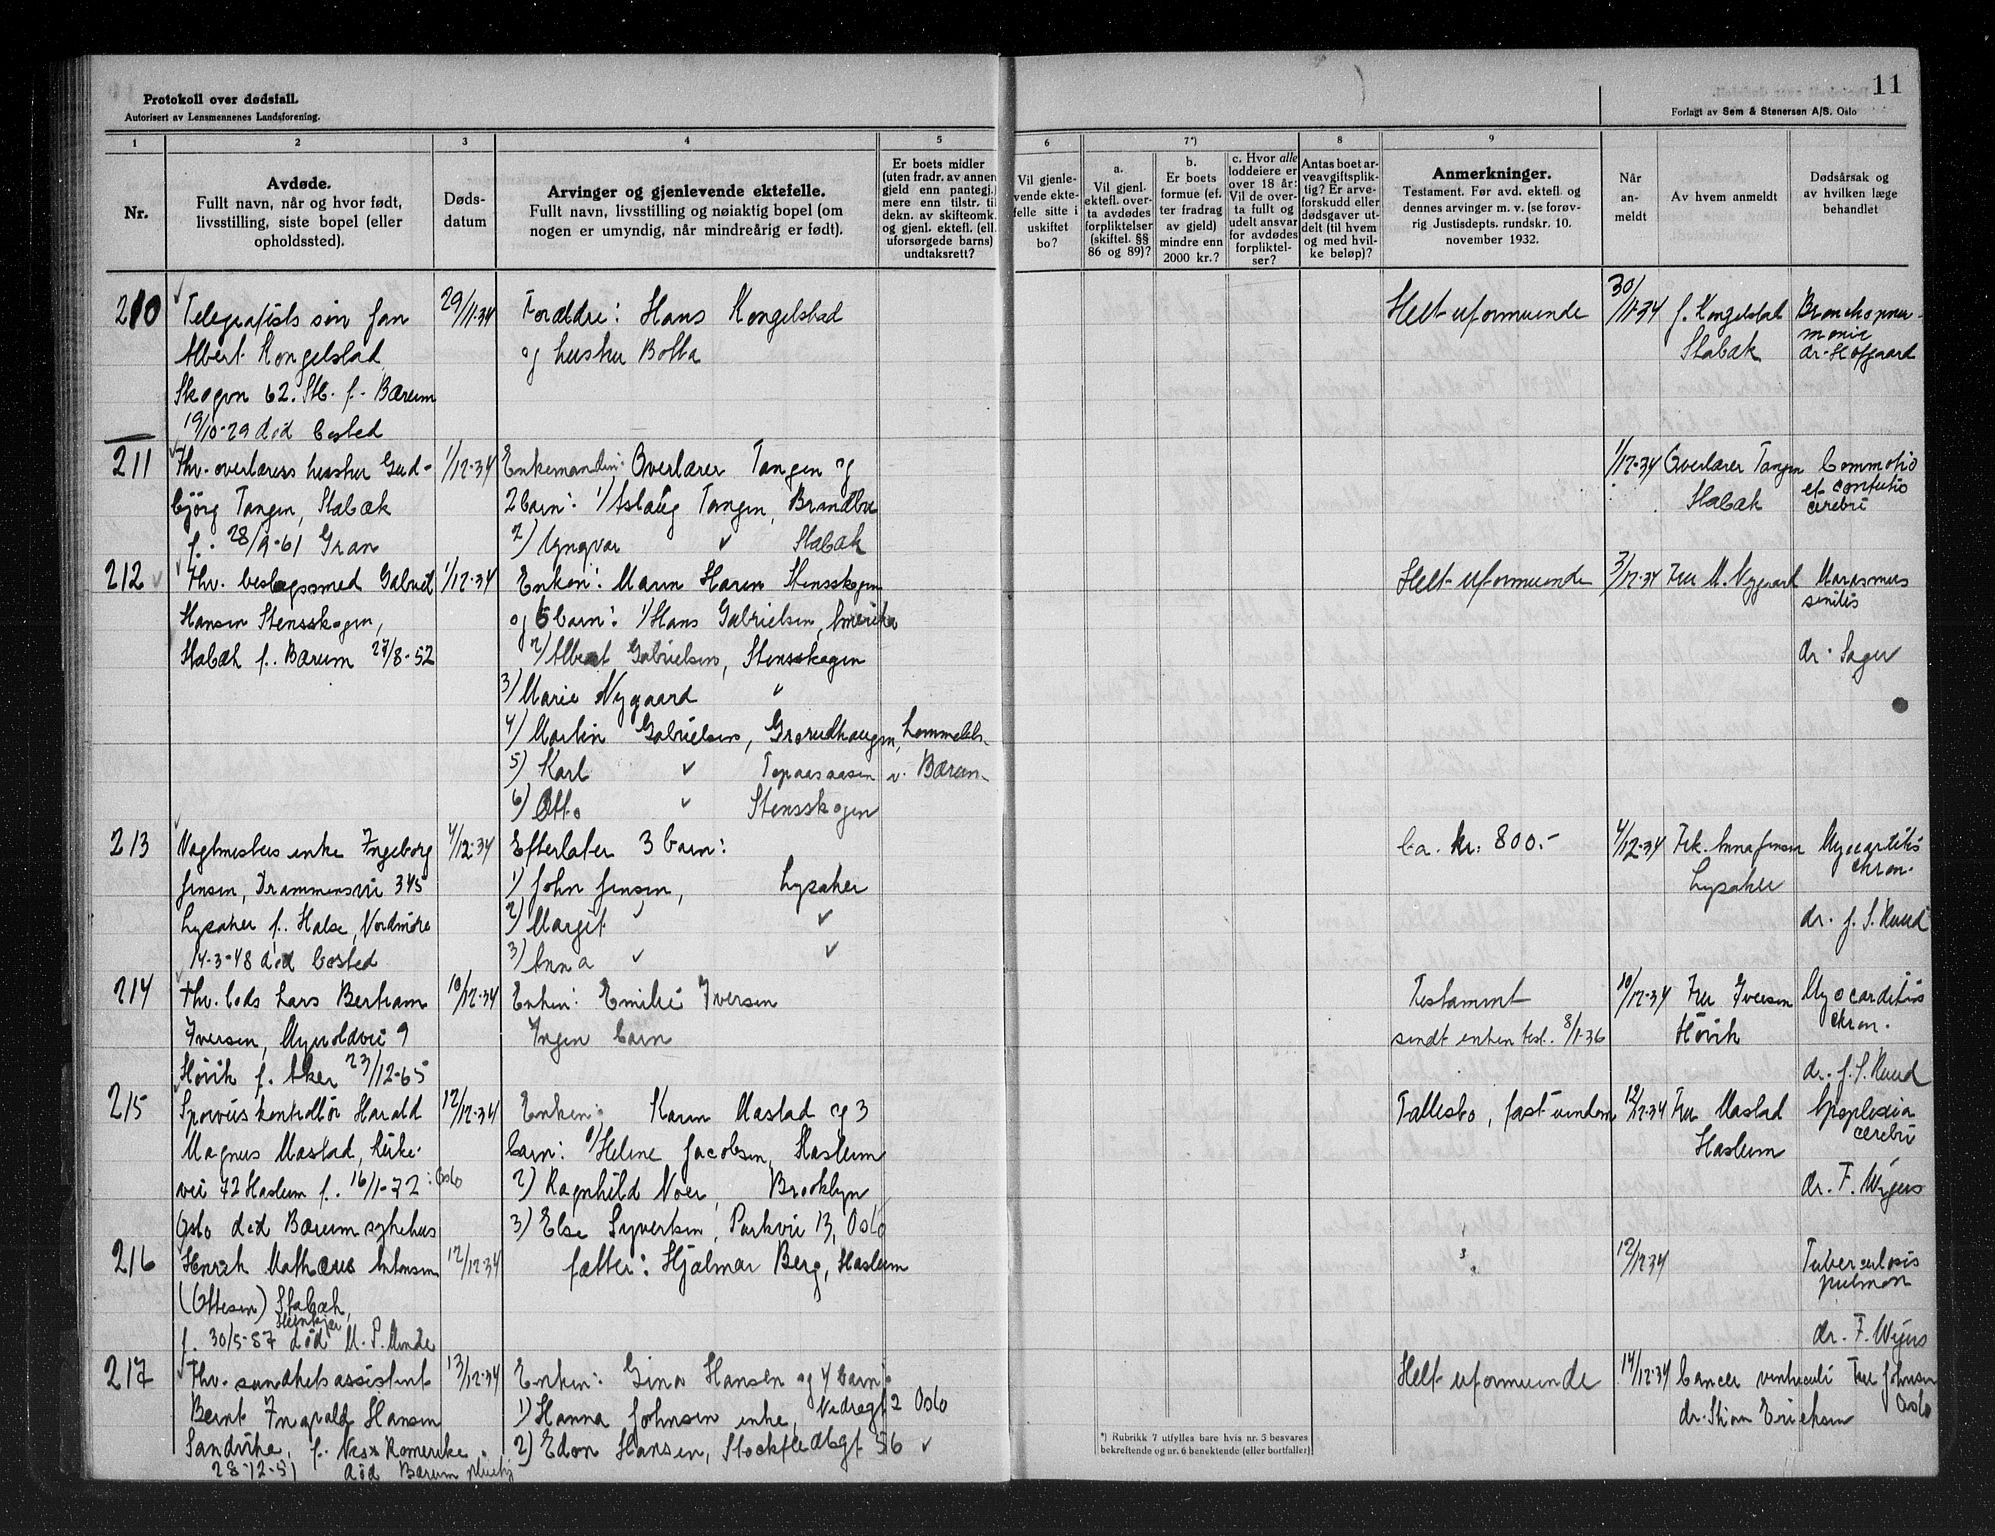 Protokoll over dødsfall.
Autorisert av Lensmennenes Landsforening.
11
Forlagt av Sem & Stenersen A/S. Oslo
1
2
3
4
5
6
7*)
8
9
Nr.
Avdøde.
Fullt navn, når og hvor født,
livsstilling, siste bopel (eller
opholdssted).
Døds-
datum
Arvinger og gjenlevende ektefelle.
Fullt navn, livsstilling og nøiaktig bopel (om
nogen er umyndig, når mindreårig er født).
Er boets midler
(uten fradr. av annen
gjeld enn pantegj.)
mere enn tilstr. til
dekn. av skifteomk.
og gjenl. ektefl. (ell.
uforsørgede barns)
undtaksrett?
Vil gjenle-
vende ekte-
felle sitte i
uskiftet
bo?
a.
Vil gjenl.
ektefl. over-
ta avdødes
forpliktelser
(skiftel. §§
86 og 89)?
b.
Er boets
formue (ef-
ter fradrag
av gjeld)
mindre enn
2000 kr.?
c. Hvor alle
loddeiere er
over 18 år:
Vil de over-
ta fullt og
udelt ansvar
for avdødes
forpliktel-
ser?
Antas boet ar-
veavgiftsplik-
tig? Er arve-
forskudd eller
dødsgaver ut-
delt (til hvem
og med hvil-
ke beløp)?
Anmerkninger.
Testament. Før avd. ektefl. og
dennes arvinger m. v. (se forøv-
rig Justisdepts. rundskr. 10.
november 1932.
Når
an-
meldt
Av hvem anmeldt
Dødsårsak og
av hvilken læge
behandlet
210
Telegrafists søn Jan
Albert Kongelstad
Skogvn 62. Stb. f. Bærum
19/10-29 død bosted
29/11-34
Forældre: Hans Kongelstad
og hustru Botta
Helt uformuende
30/11-34
f. Kongelstad
Stabæk
Bronchopneu-
monie
dr. Hofgaard
211
Fhv. overlærers hustru Gud-
björg Tangen, Stabæk
f. 28/9-61 Gran
1/12-34
Enkemanden: Overlærer Tangen og
2 barn: 1) Aslaug Tangen, Brandbu
2) Yngvar " Stabæk
1/12-34
Overlærer Tangen
Stabæk
Commotio
et contutio
cerebri
212
Fhv. beslagsmed Gabriel
Hansen Stensskogen,
Stabæk f. Bærum 27/8-52
1/12-34
Enken: Maren Karen Stensskogen
og 6 barn: 1) Hans Gabrielsen, Amerika
2) Albert Gabrielsen, Stensskogen
3) Marie Nygaard "
4) Martin Gabrielsen, Grorudhaugen, Lommedals-
5) Karl " Topaasaasen v. Bærum
6) Otto " Stensskogen
Helt uformuende
3/12-34
Fru M. Nygaard
Marasmus
senilis
dr. Sager
213
Vagtmesters enke Ingeborg
Jensen, Drammensvei 345
Lysaker f. Halse, Nordmøre
14-3-48 død bosted
4/12-34
Efterlater 3 barn:
1) John Jensen, Lysaker
2) Margit " "
3) Anna " "
Ca. kr. 800.-
4/12-34
Frk. Anna Jensen
Lysaker
Myocarditis
chron.
dr. J. S. Ruud
214
Fhv. lods Lars Bertram
Iversen, 9
Høvik f. Aker 23/12-65
10/12-34
Enken: Emilie Iversen
Ingen barn
Testament
sendt enken test. 8/1-36
10/12-34
Fru Iversen
Høvik
Myocarditis
chron.
dr. J. S. Ruud
215
Sporveiskontrollør Harald
Magnus Mastad, Kirke-
vei 72 Haslum f. 16/1-72: Oslo
Oslo død Bærum sykehus
12/12-34
Enken: Karen Mastad og 3
barn: 1) Helene Jacobsen, Haslum
2) Ragnhild Noer, Brooklyn
3) Else Syvertsen, Parkvei 13, Oslo
Fallesbo, fast eiendom
12/12-34
Fru Mastad
Haslum
Apoplexia
cerebri
dr. F. Wiers
216
Henrik Mathæus Antonsen
(Ottesen) Stabæk,
Steinkjær
f. 30/5-87 død M. P. Minde
12/12-34
fætter: Hjalmar Berg, Haslum
12/12 34
Tuberculosis
pulmon
dr. F. Wiers
217
Fhv. sundhetsassistent
Bernt Ingvald Hansen
Sandvika, f. Nes Romerike
28-12-51 død Bærum pleiehj
13/12-34
Enken: Gina Hansen og 4 barn:
1) Hanna Johnsen enke, Vedregt 2 Oslo
2) Edon Hansen, Stockfledtsgt 56 "
Helt uformuende
14/12-34
Cancer ventriculi
dr. Stian Erichsen
Fru Johnsen
Oslo
*) Rubrikk 7 utfylles bare hvis nr. 5 besvares
bekreftende og nr. 6 benektende (eller bortfaller)